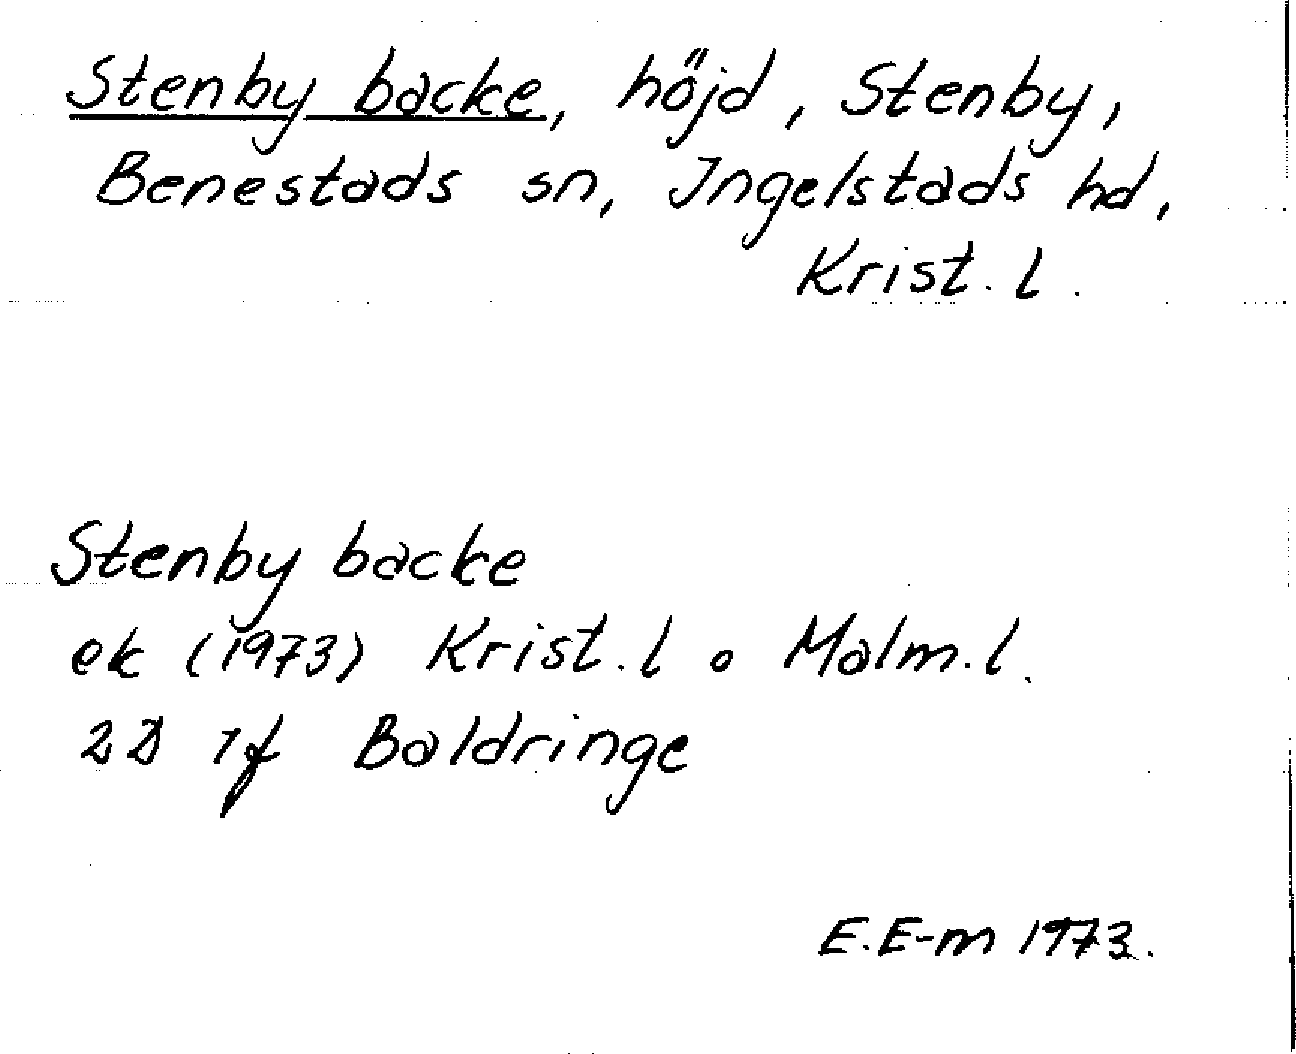 Stenby backe, höjd, Stenby,
Benestads sn, Ingelstads hd,
Krist. l.
Stenby backe
ek (1973) Krist. l o Malm. l.
2D 1f Baldringe
E. E-m 1973.